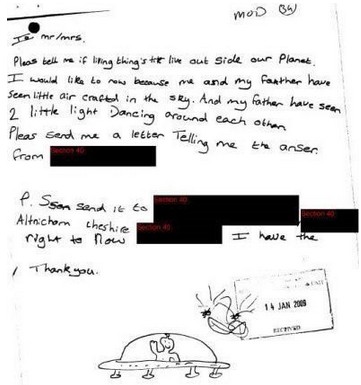 MOD
To mr/mrs.
Pleas tell me if living thing's live out side our Planet.
I would like to now because me and my farther have
seen little air crafted in the sky. And my father have seen
2 little light Dancing around each other
Pleas send me a letter Telling me the anser.
from Section 40
P. send it to Section 40
Altrichom cheshire Section 40 Section 40
right to Now I have the
Thankyou.
14 JAN 2009
RECEIVED